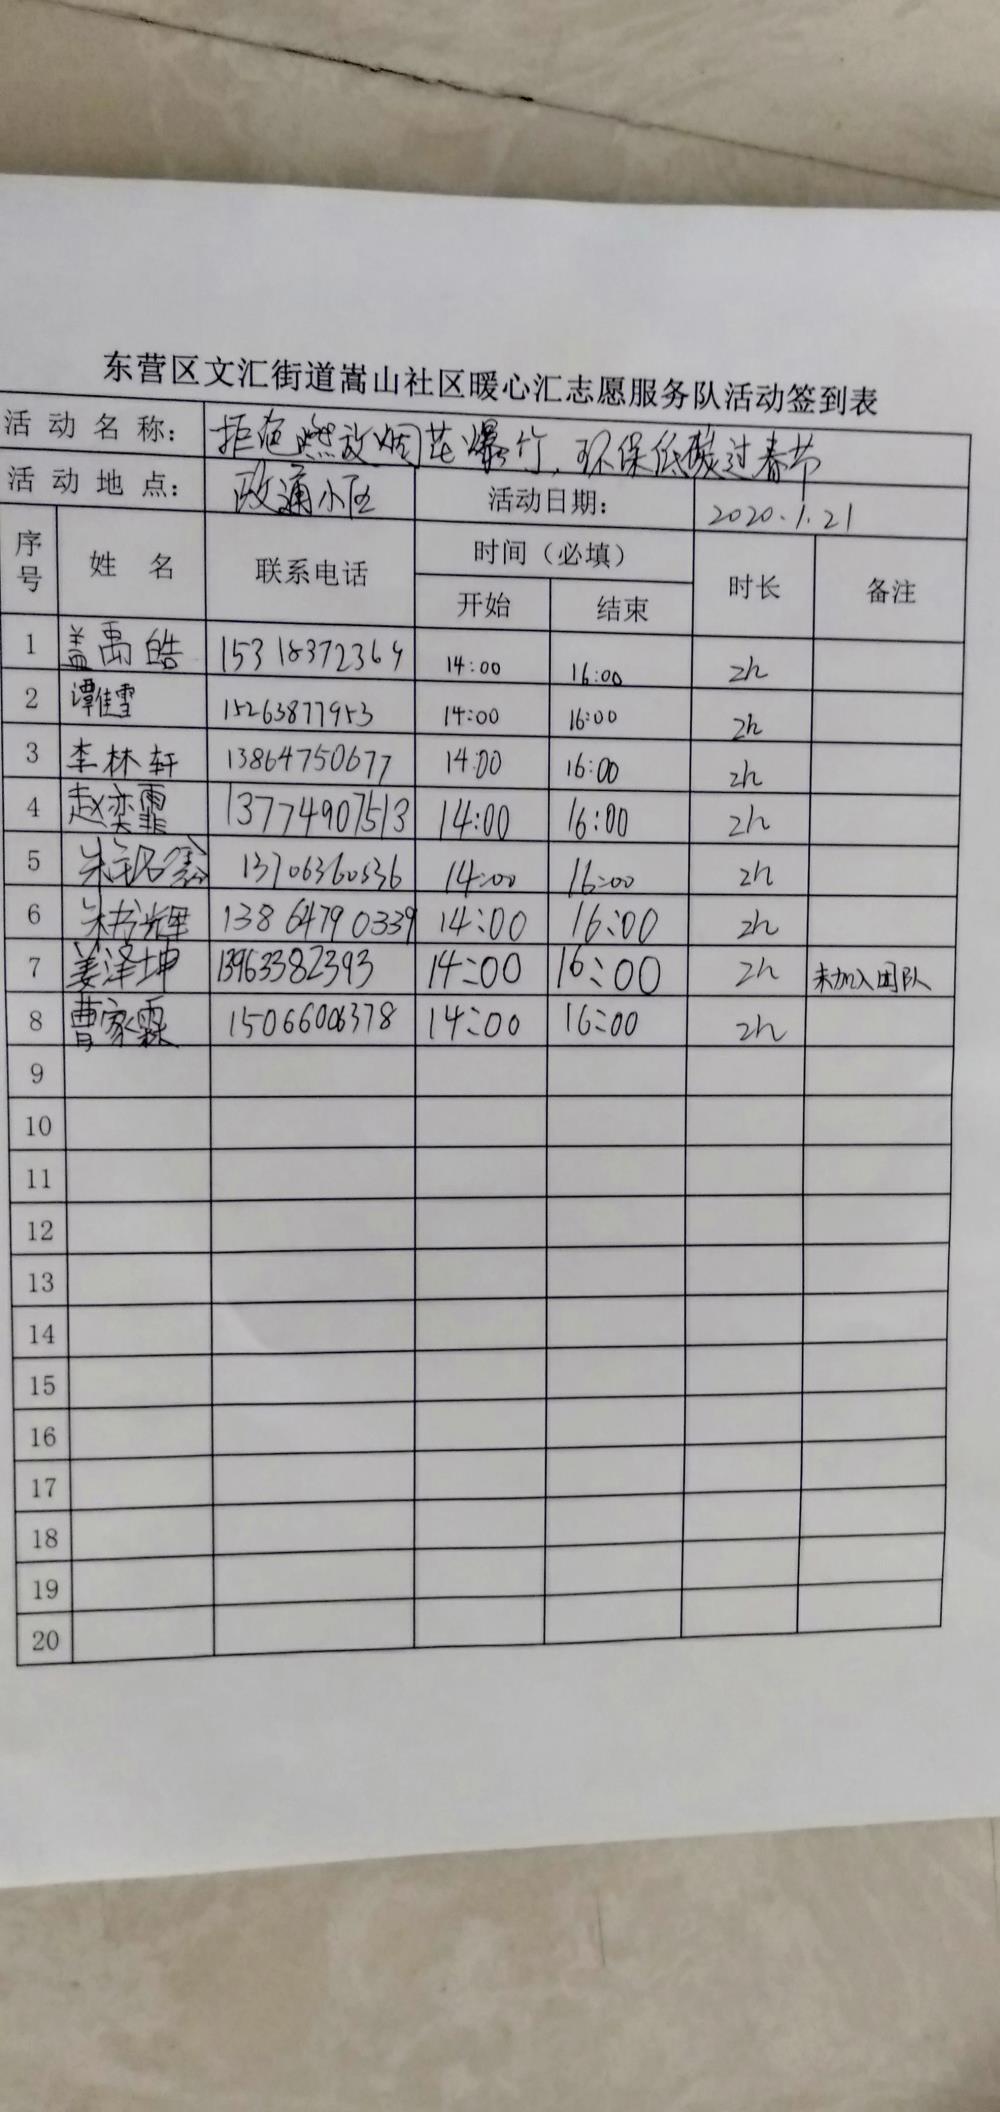 东营区文汇街道嵩山社区暖心汇志愿服务队活动签到表
活动名称： 拒绝燃放烟花爆竹，环保低碳过春节
活动地点： 政通小区 活动日期： 2020.1.21
序号 姓名 联系电话 时间（必填） 时长 备注
开始 结束
1 盖禹皓 15318372369 14:00 16:00 2h
2 谭佳雪 15263877953 14:00 16:00 2h
3 李林轩 13864750677 14:00 16:00 2h
4 赵奕霏 13774907513 14:00 16:00 2h
5 13706360336 14:00 16:00 2h
6 朱书辉 13864790339 14:00 16:00 2h
7 姜泽坤 13963382393 14:00 16:00 2h 未加入团队
8 曹家霖 15066006378 14:00 16:00 2h
9
10
11
12
13
14
15
16
17
18
19
20